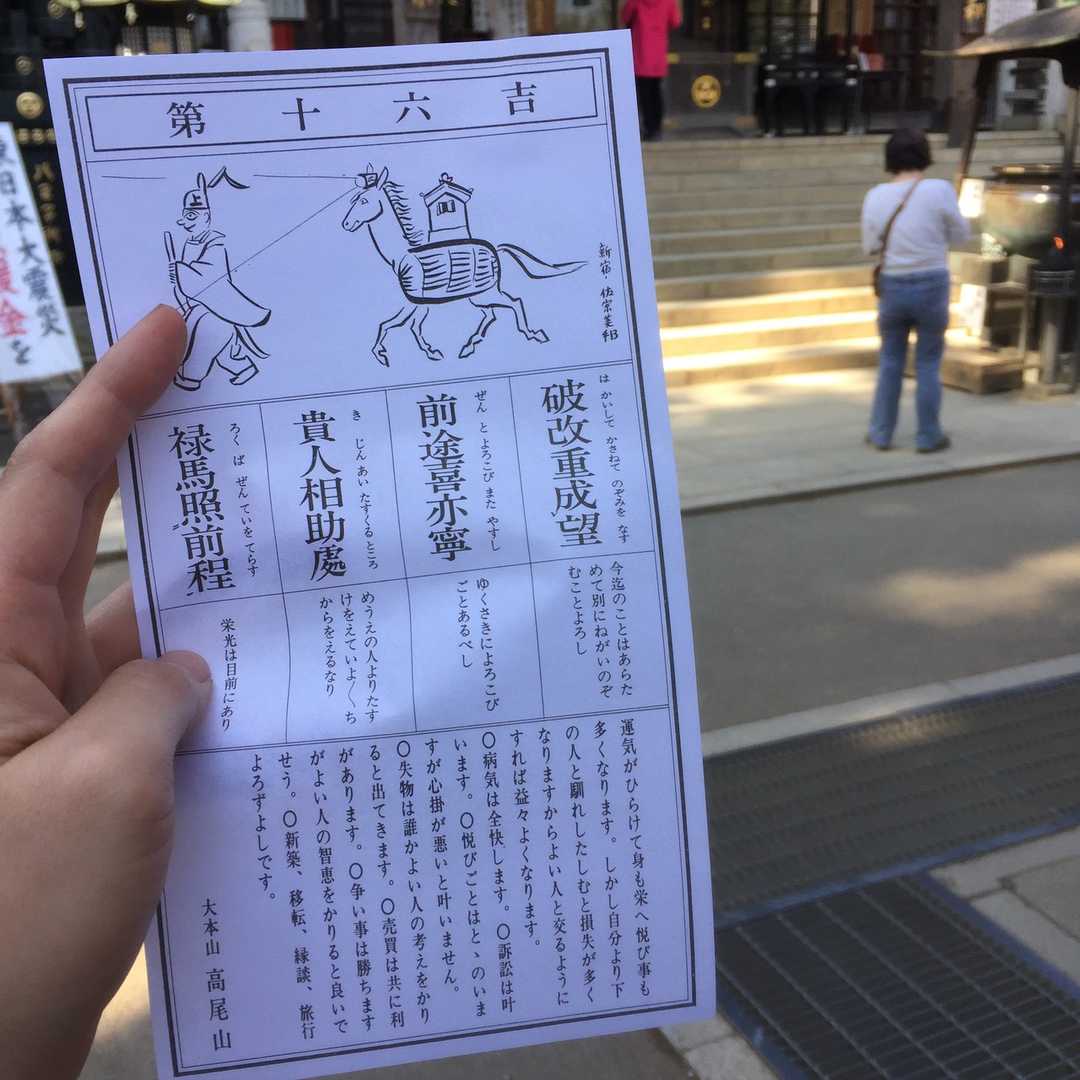 第十六吉
上
新宿・佐宗美邦
はかいして かさねて のぞみを なす
破改重成望
ぜんと よろこび また やすし
前途喜亦寧
きじん あい たすくる ところ
貴人相助處
ろくば ぜんていを てらす
禄馬照前程
今迄のことはあらた
めて別にねがいのぞ
むことよろし
ゆくさきによろこび
ごとあるべし
めうえの人よりたす
けをえていよ〱ち
からをえるなり
栄光は目前にあり
運気がひらけて身も栄へ悦び事も
多くなります。しかし自分より下
の人と馴れしたしむと損失が多く
なりますからよい人と交るように
すれば益々よくなります。
〇病気は全快します。〇訴訟は叶
います。〇悦びごとはとゝのいま
すが心掛が悪いと叶いません。
〇失物は誰かよい人の考えをかり
ると出てきます。〇売買は共に利
があります。〇争い事は勝ちます
がよい人の智恵をかりると良いで
せう。〇新築、移転、縁談、旅行
よろずよしです。
大本山 高尾山
東日本大震災
援金を